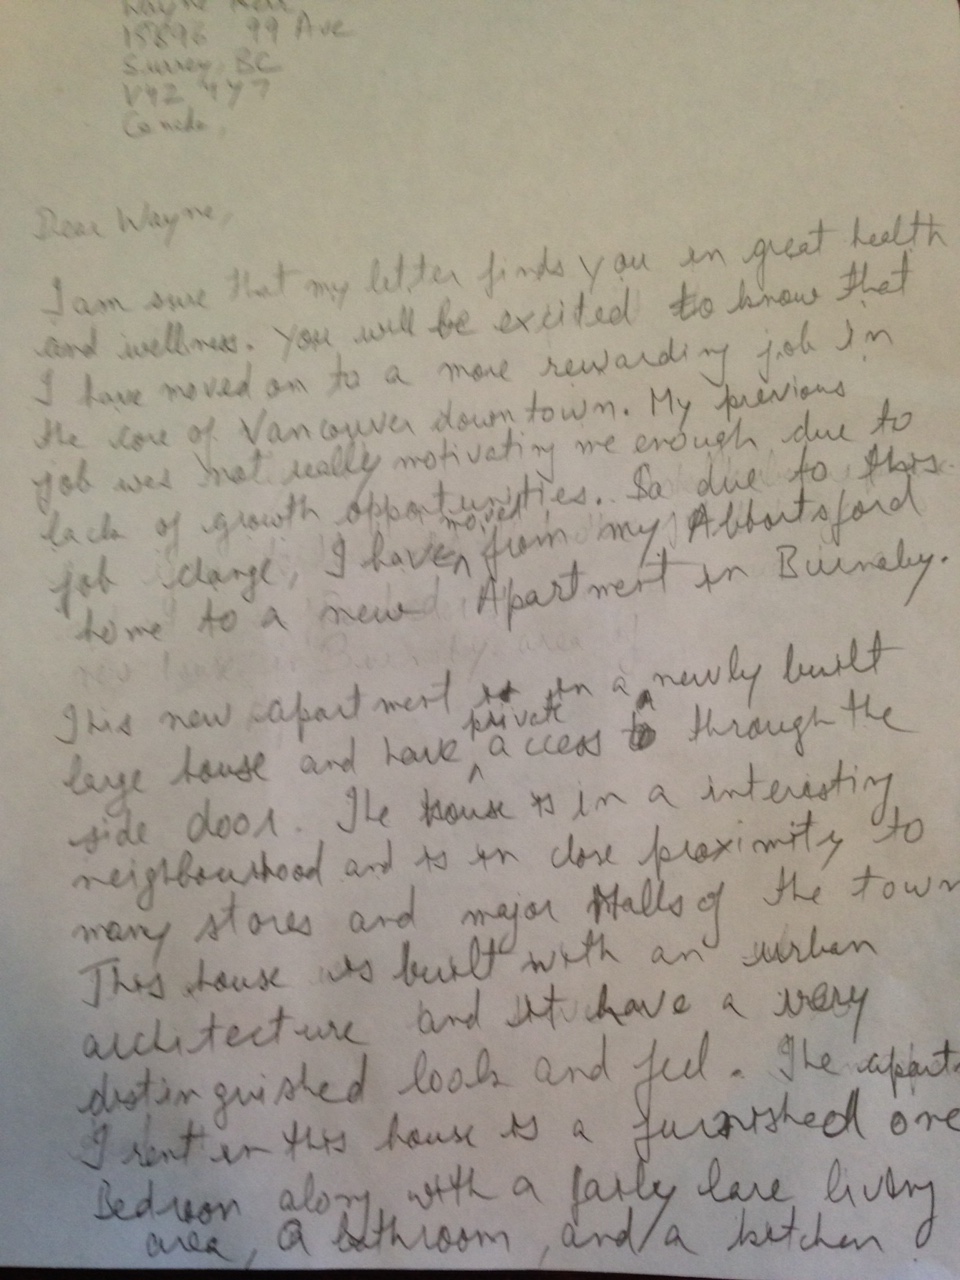 Wayne
15896 99 Ave
Surrey, BC
V4Z 4Y7
Canada,
Dear Wayne,
I am sure that my letter finds you in great health
and wellness. You will be excited to know that
I have moved on to a more rewarding job in
the core of Vancouver downtown. My previous
job was not really motivating me enough due to
lack of growth opportunities. So due to this
job change, I have moved from my Abbortsford
home to a new Apartment in Burnaby.
This new apartment is in a newly built
large house and have private access through the
side door. The house is in a interesting
neighbourhood and is in close proximity to
many stores and major Malls of the town
This house is built with an urban
architecture and it have a very
distinguished look and feel. The apart
I rent in this house is a furnished one
Bedroon along with a farly lare living
area, a bathroom, and a kitchen